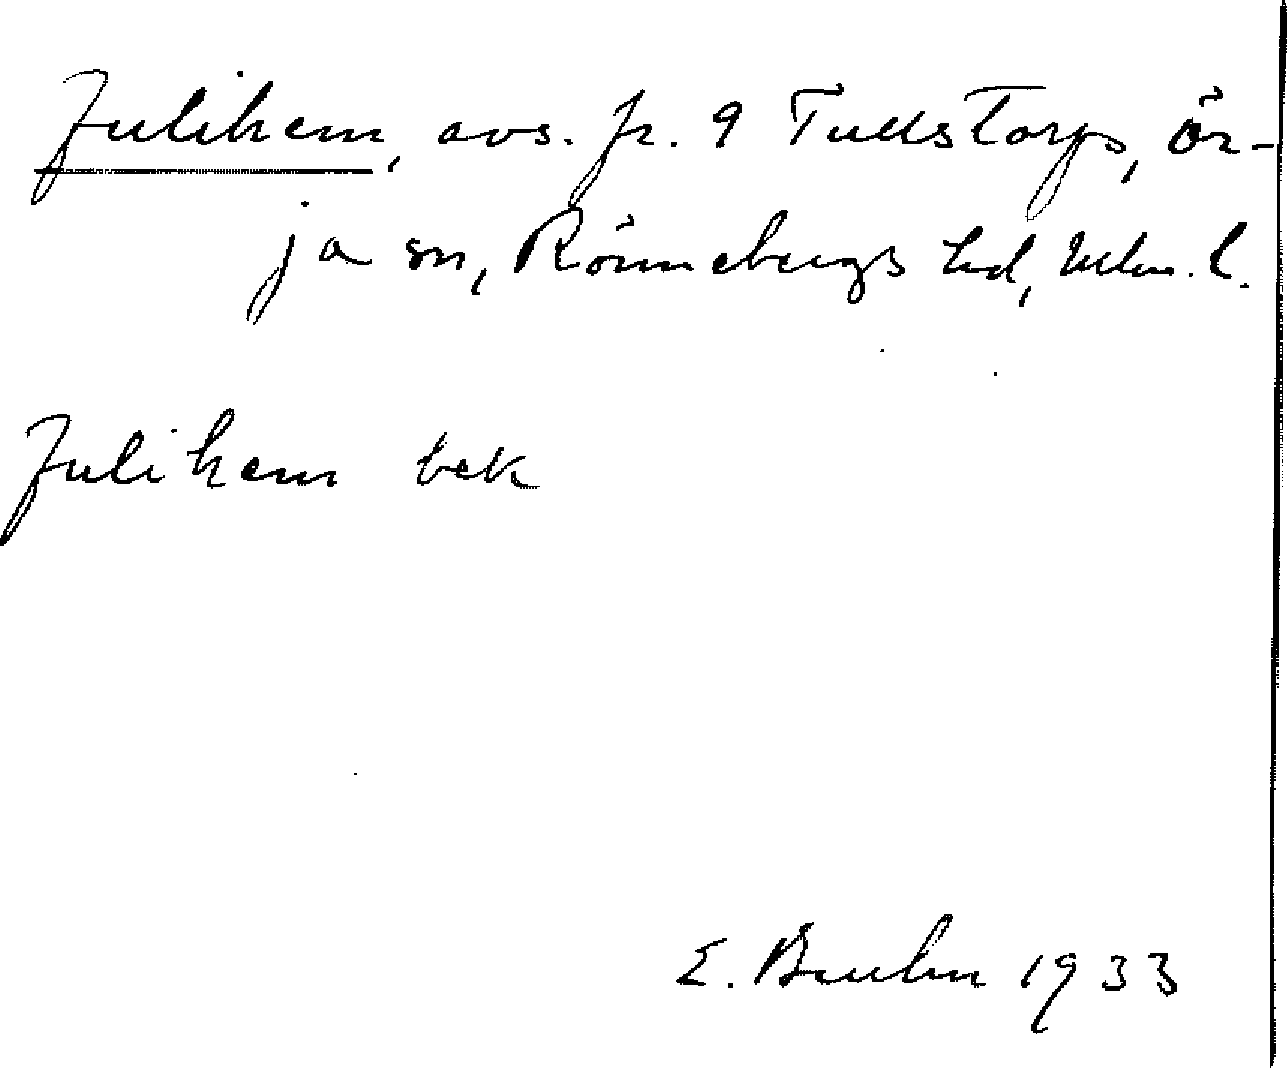 Julihem, avs. fr. 9 Tullstorp, Ör-
ja sn, Rönnebergs hd, Mlm. l.
Julihem bek
E. Bruhn 1933